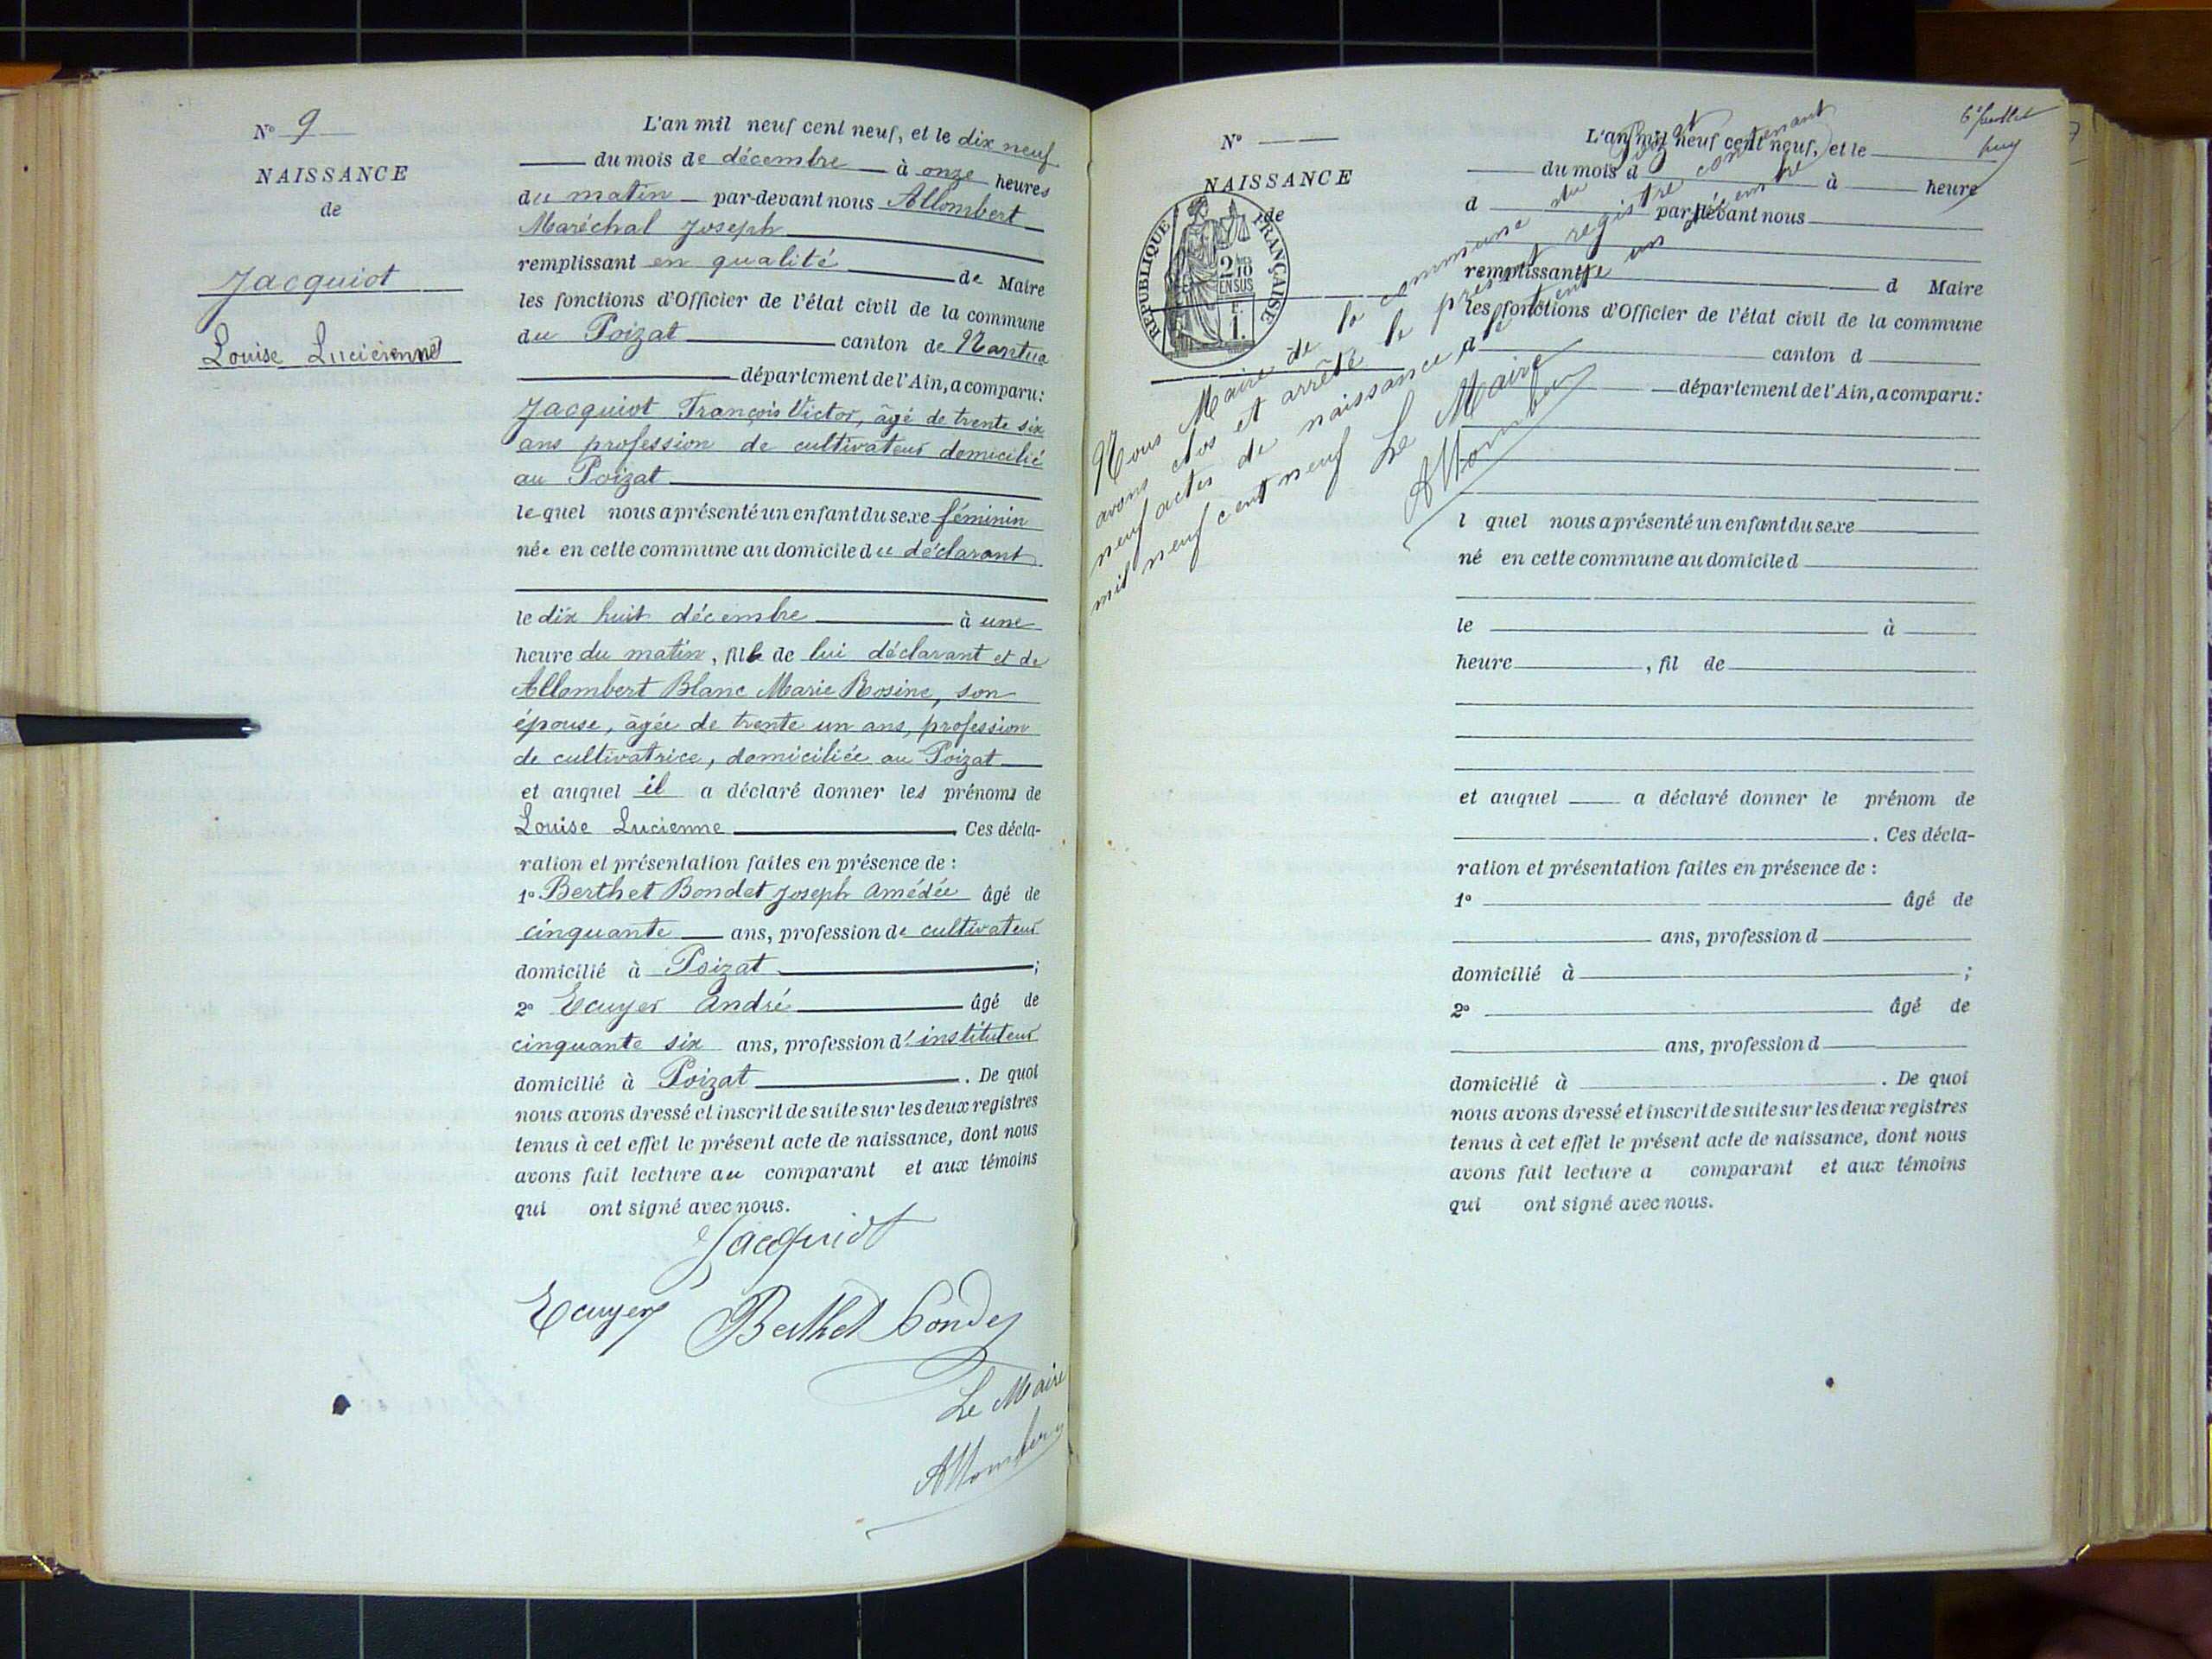 N° 9
NAISSANCE
de
Jacquiot
Louise Lucienne
L'an mil neuf cent neuf, et le dix neuf
du mois de décembre à onze heures
du matin par-devant nous Allombert
Maréchal Joseph
remplissant en qualité de Maire
les fonctions d'Officier de l'état civil de la commune
du Poizat canton de Nantua
département de l'Ain, a comparu:
Jacquiot François Victor, âgé de trente six
ans profession de cultivateur domicilié
au Poizat
le quel nous a présenté un enfant du sexe féminin
née en cette commune au domicile du déclarant
le dix huit décembre à une
heure du matin, fille de lui déclarant et de
Allombert Blanc Marie Rosine, son
épouse, âgée de trente un ans, profession
de cultivatrice, domiciliée au Poizat
et auquel il a déclaré donner les prénoms de
Louise Lucienne Ces décla-
ration et présentation faites en présence de :
1° Berthet Bondet Joseph Amédée âgé de
cinquante ans, profession de cultivateur
domicilié à Poizat ;
2° Ecuyer André âgé de
cinquante six ans, profession d'instituteur
domicilié à Poizat . De quoi
nous avons dressé et inscrit de suite sur les deux registres
tenus à cet effet le présent acte de naissance, dont nous
avons fait lecture au comparant et aux témoins
qui ont signé avec nous.
Jacquiot
Ecuyer Berthet Bondet
Le Maire
Allombert
6e feuillet
N°
NAISSANCE
de
RÉPUBLIQUE FRANÇAISE
2/10 EN SUS
1 F.
Nous Maire de la commune du Poizat
avons clos et arrêté le présent registre contenant
neuf actes de naissance le trente un décembre
mil neuf cent neuf Le Maire
Allombert
L'an mil neuf cent neuf, et le
du mois d à heure
d par-devant nous
remplissant d Maire
les fonctions d'Officier de l'état civil de la commune
d canton d
département de l'Ain, a comparu:
l quel nous a présenté un enfant du sexe
né en cette commune au domicile d
le à
heure , fil de
et auquel a déclaré donner le prénom de
. Ces décla-
ration et présentation faites en présence de :
1° âgé de
ans, profession d
domicilié à ;
2° âgé de
ans, profession d
domicilié à . De quoi
nous avons dressé et inscrit de suite sur les deux registres
tenus à cet effet le présent acte de naissance, dont nous
avons fait lecture a comparant et aux témoins
qui ont signé avec nous.